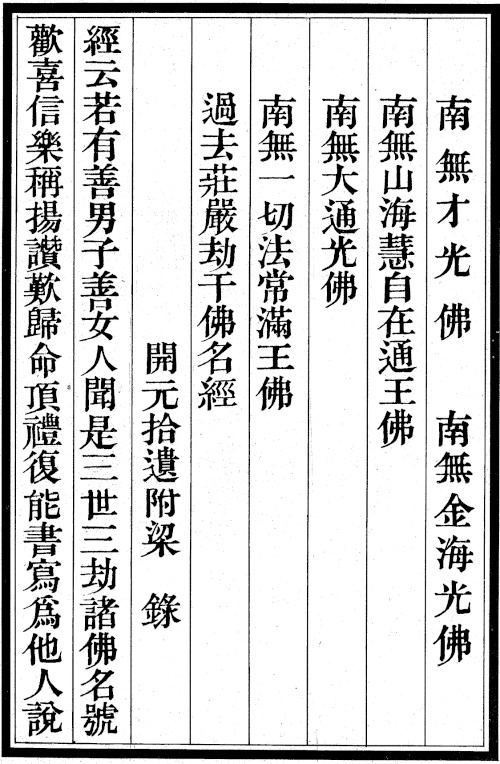 南無才光佛　南無金海光佛
南無山海慧自在通王佛
南無大通光佛
南無一切法常滿王佛
過去莊嚴劫千佛名經
開元拾遺附梁　錄
經云若有善男子善女人聞是三世三劫諸佛名號
歡喜信樂稱揚讚歎歸命頂禮復能書寫爲他人說